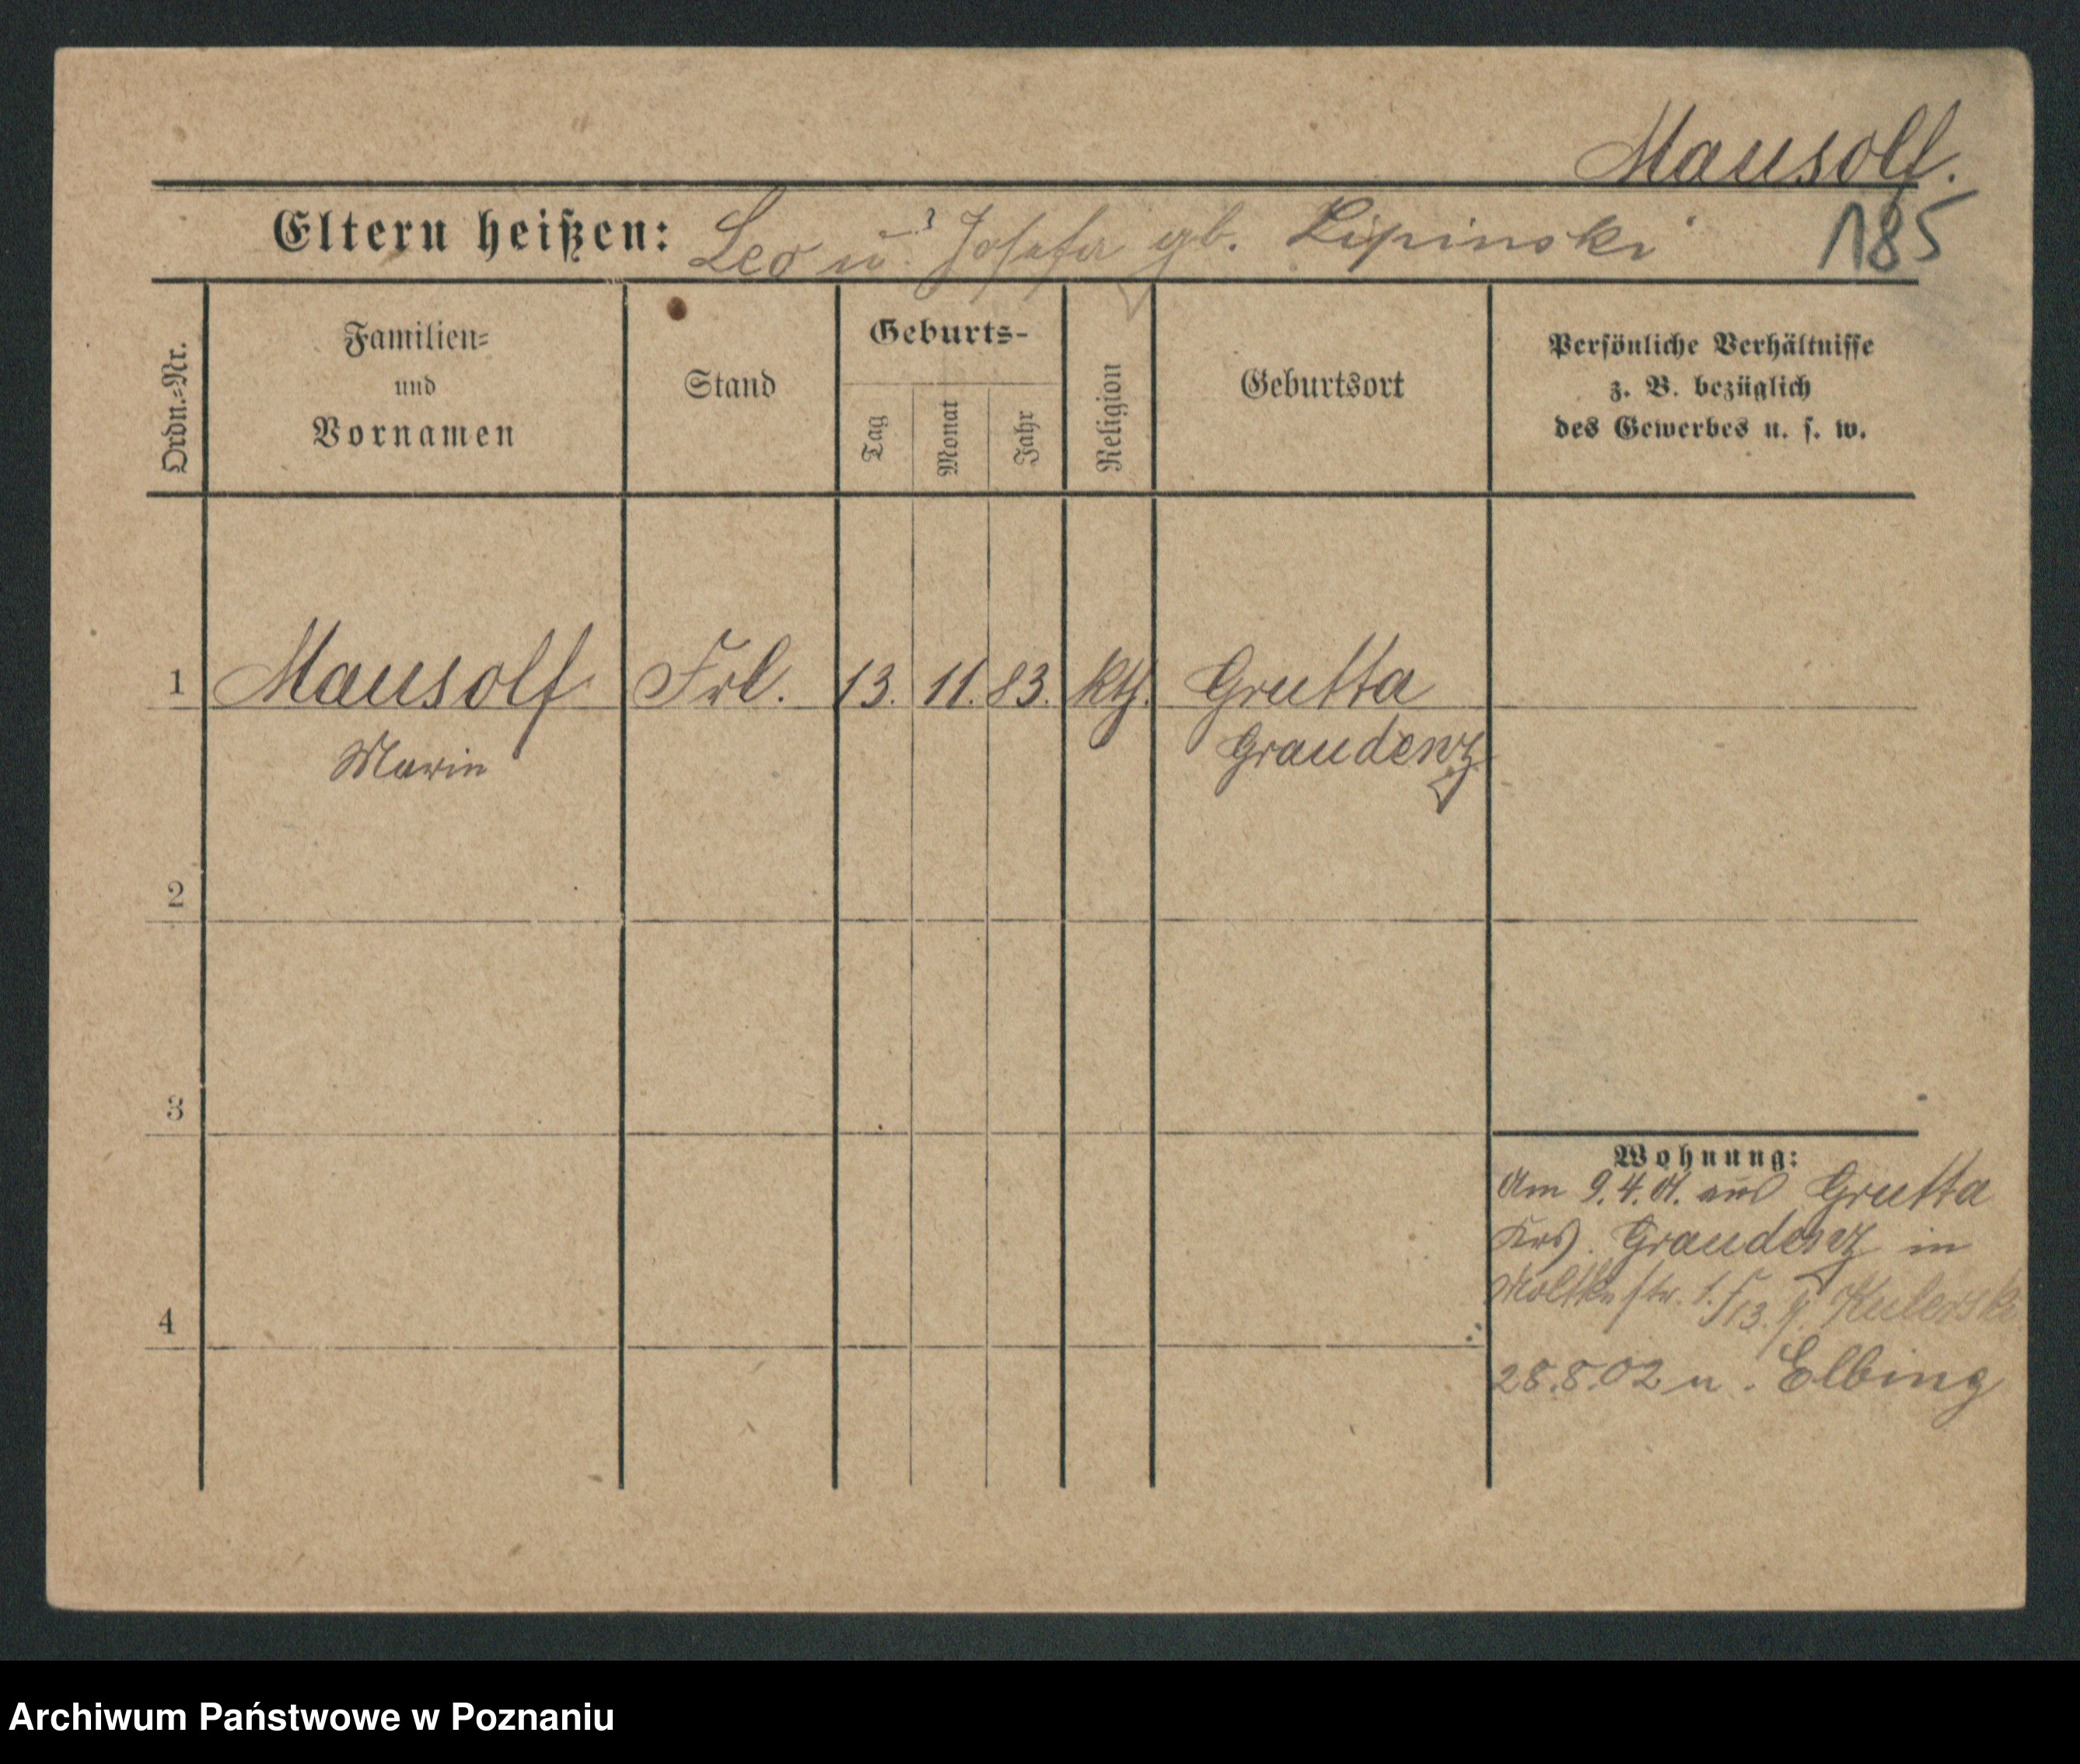 Mausolf.
185
Eltern heißen: Leo u. Josefa gb. Lipinski
Ordn.-Nr.
Familien-
und
Vornamen
Stand
Geburts-
Tag
Monat
Jahr
Religion
Geburtsort
Persönliche Verhältnisse
z. B. bezüglich
des Gewerbes u. s. w.
1 Mausolf Frl. 13. 11. 83. kth. Grutta
Marie Graudenz
2
3
4
Wohnung:
Am 9.4.01. aus Grutta
Krs. Graudenz in
Moltkestr. 1. Kulerski
28.8.02 n. Elbing
Archiwum Państwowe w Poznaniu